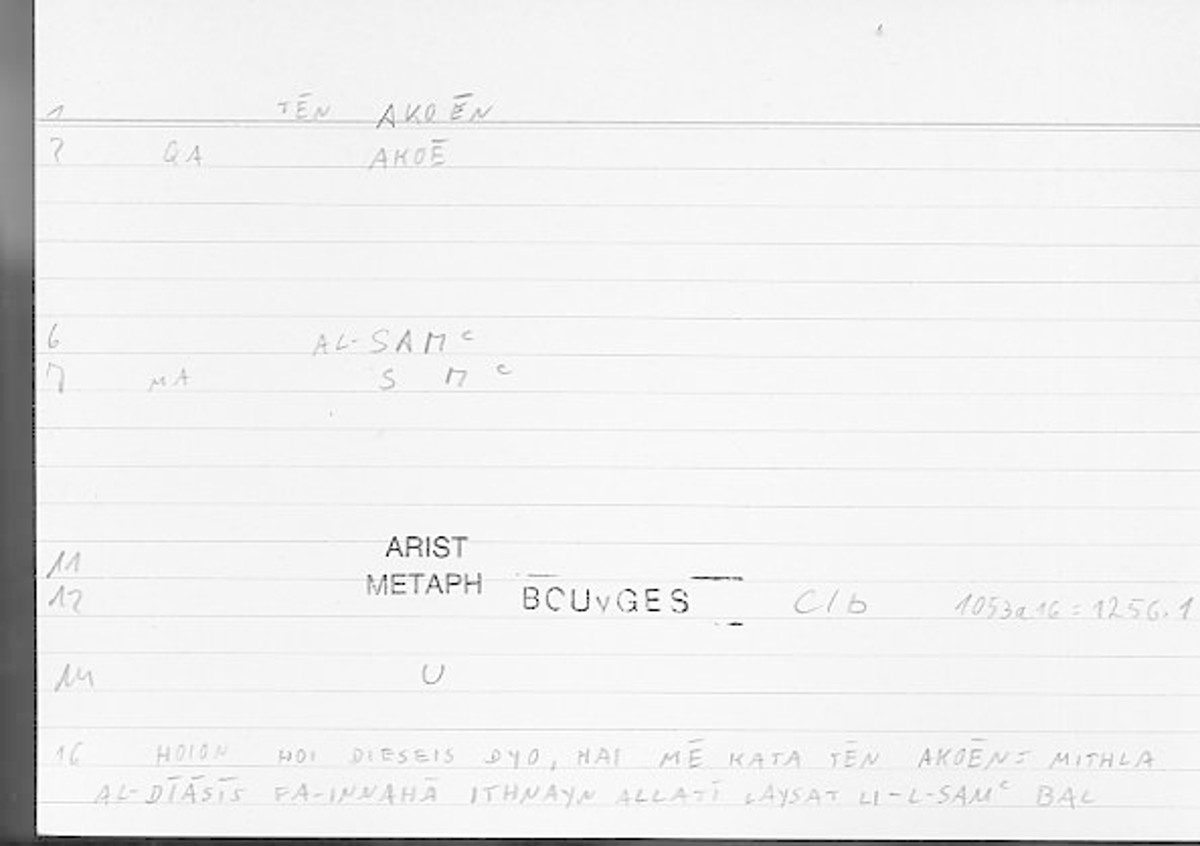 1 TĒN AKOĒN
2 QA AKOĒ
6 AL-SAMᶜ
7 MA S M ᶜ
11 ARIST
12 METAPH BOUYGES C/b 1053a16 = 1256.1
14 U
16 HOION HOI DIESEIS DYO, HAI MĒ KATA TĒN AKOĒN = MITHLA
AL-DĪĀSĪS FA-INNAHĀ ITHNAYN ALLATĪ LAYSAT LI-L-SAMᶜ BAL